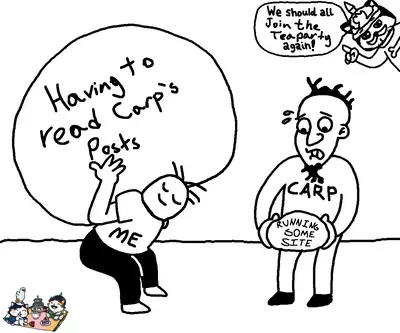 We should all
Join the
Teaparty
again!
Having to
read Carp's
Posts
ME
CARP
RUNNING
SOME
SITE